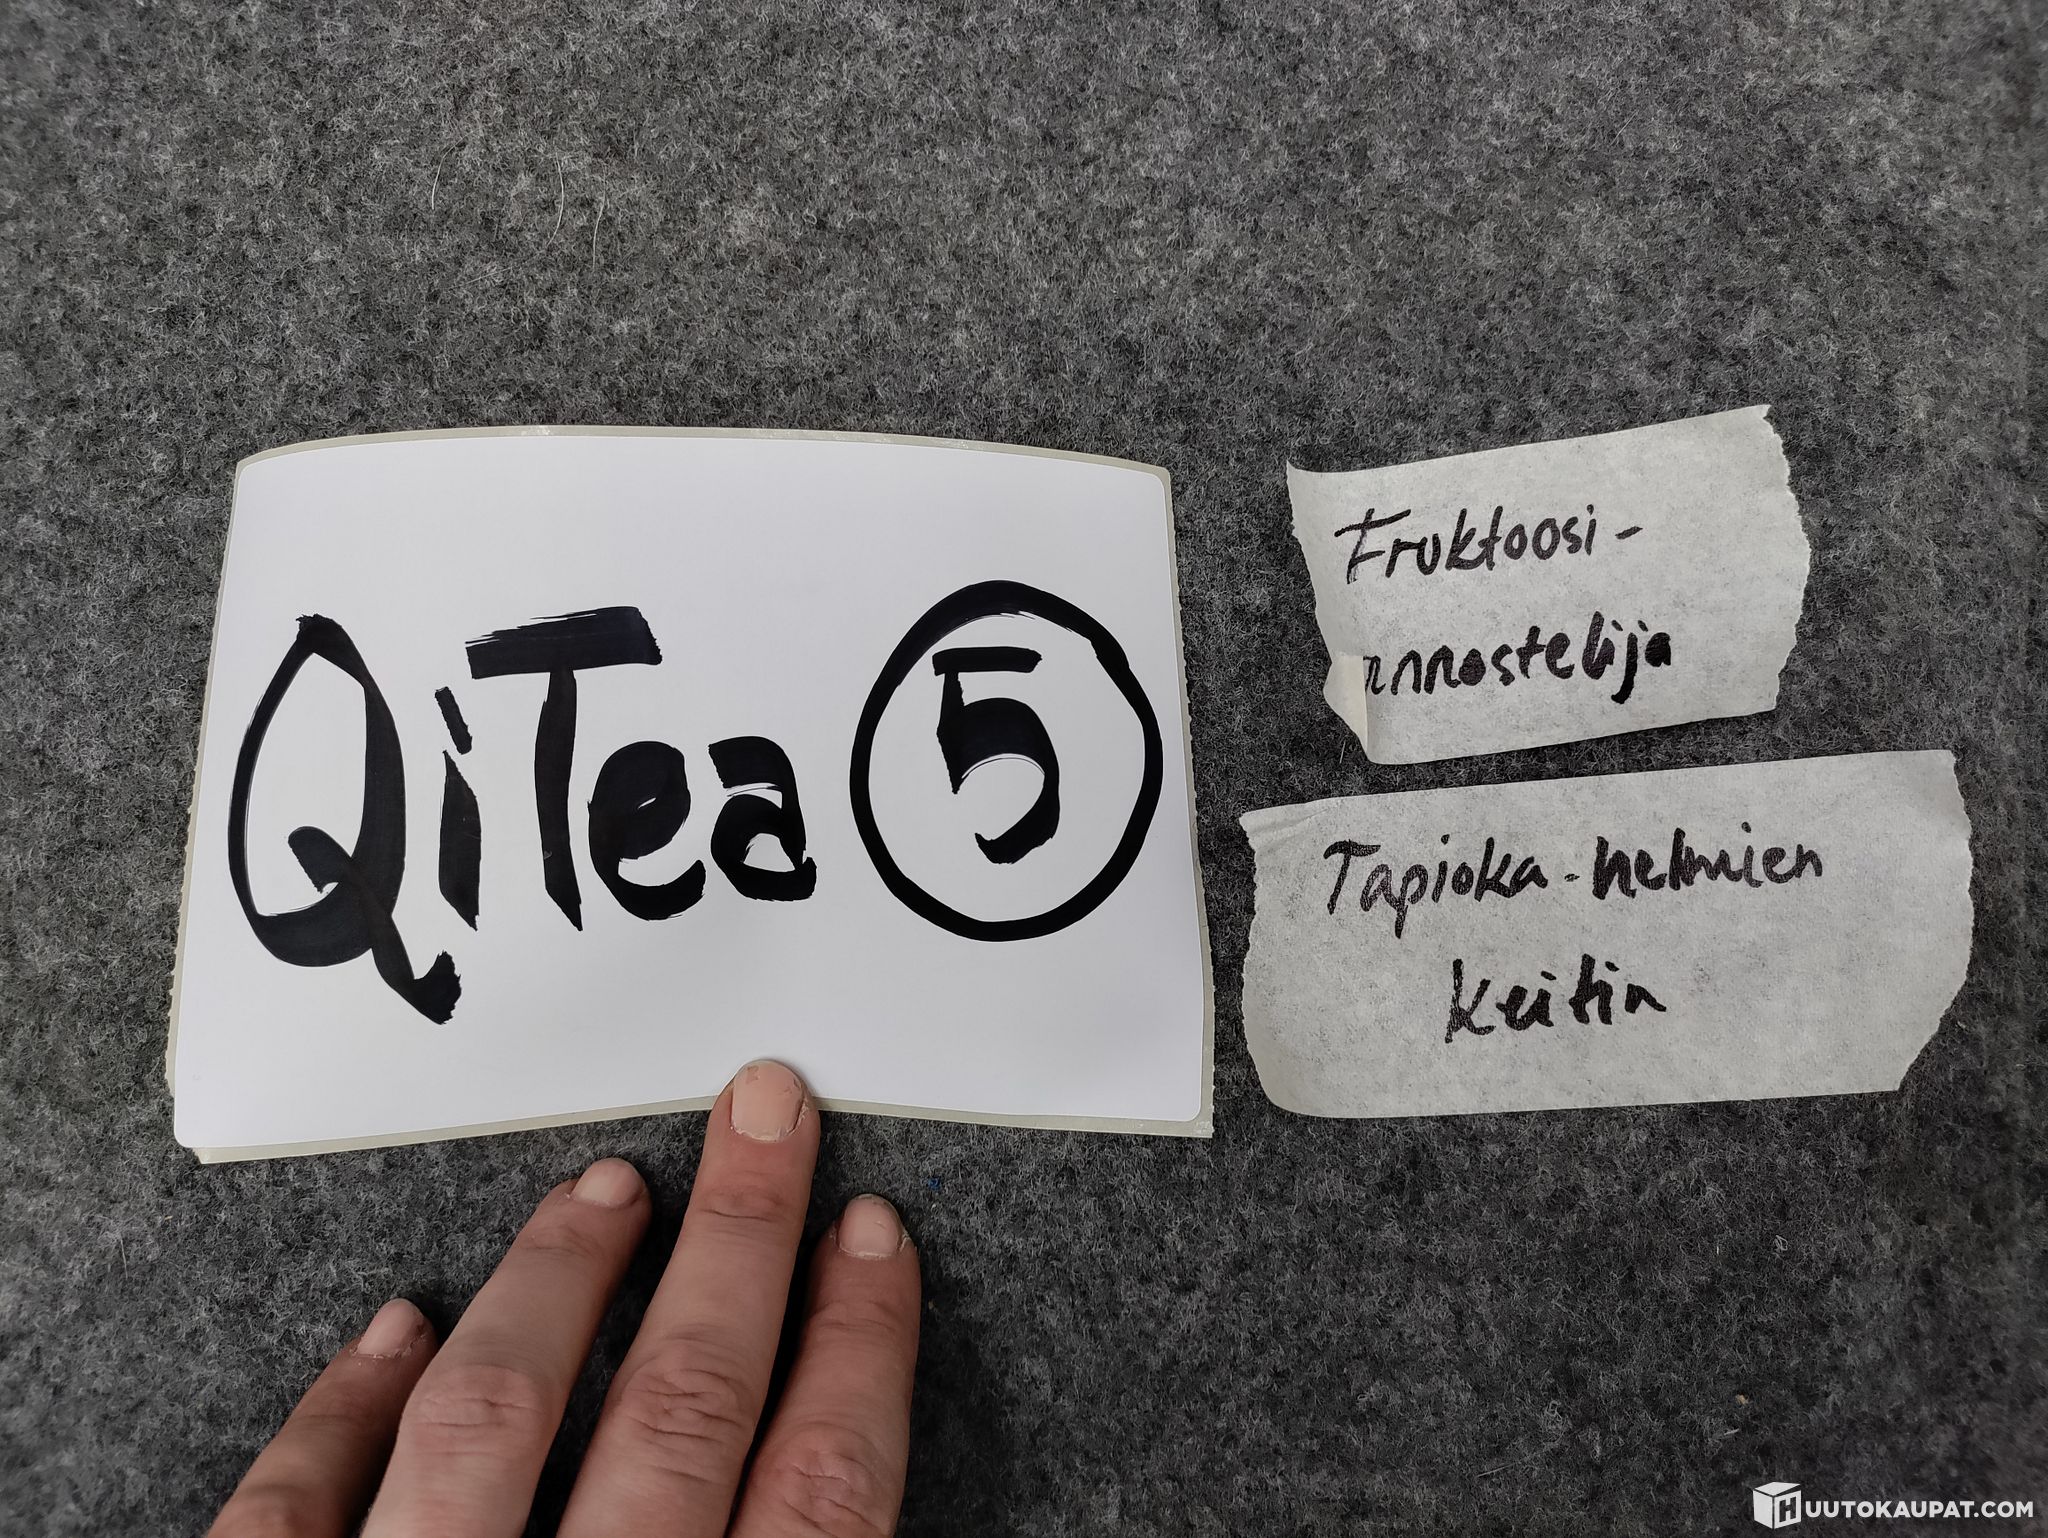 QiTea 5
Fruktoosi-
annostelija
Tapioka-helmien
keitin
HUUTOKAUPAT.COM